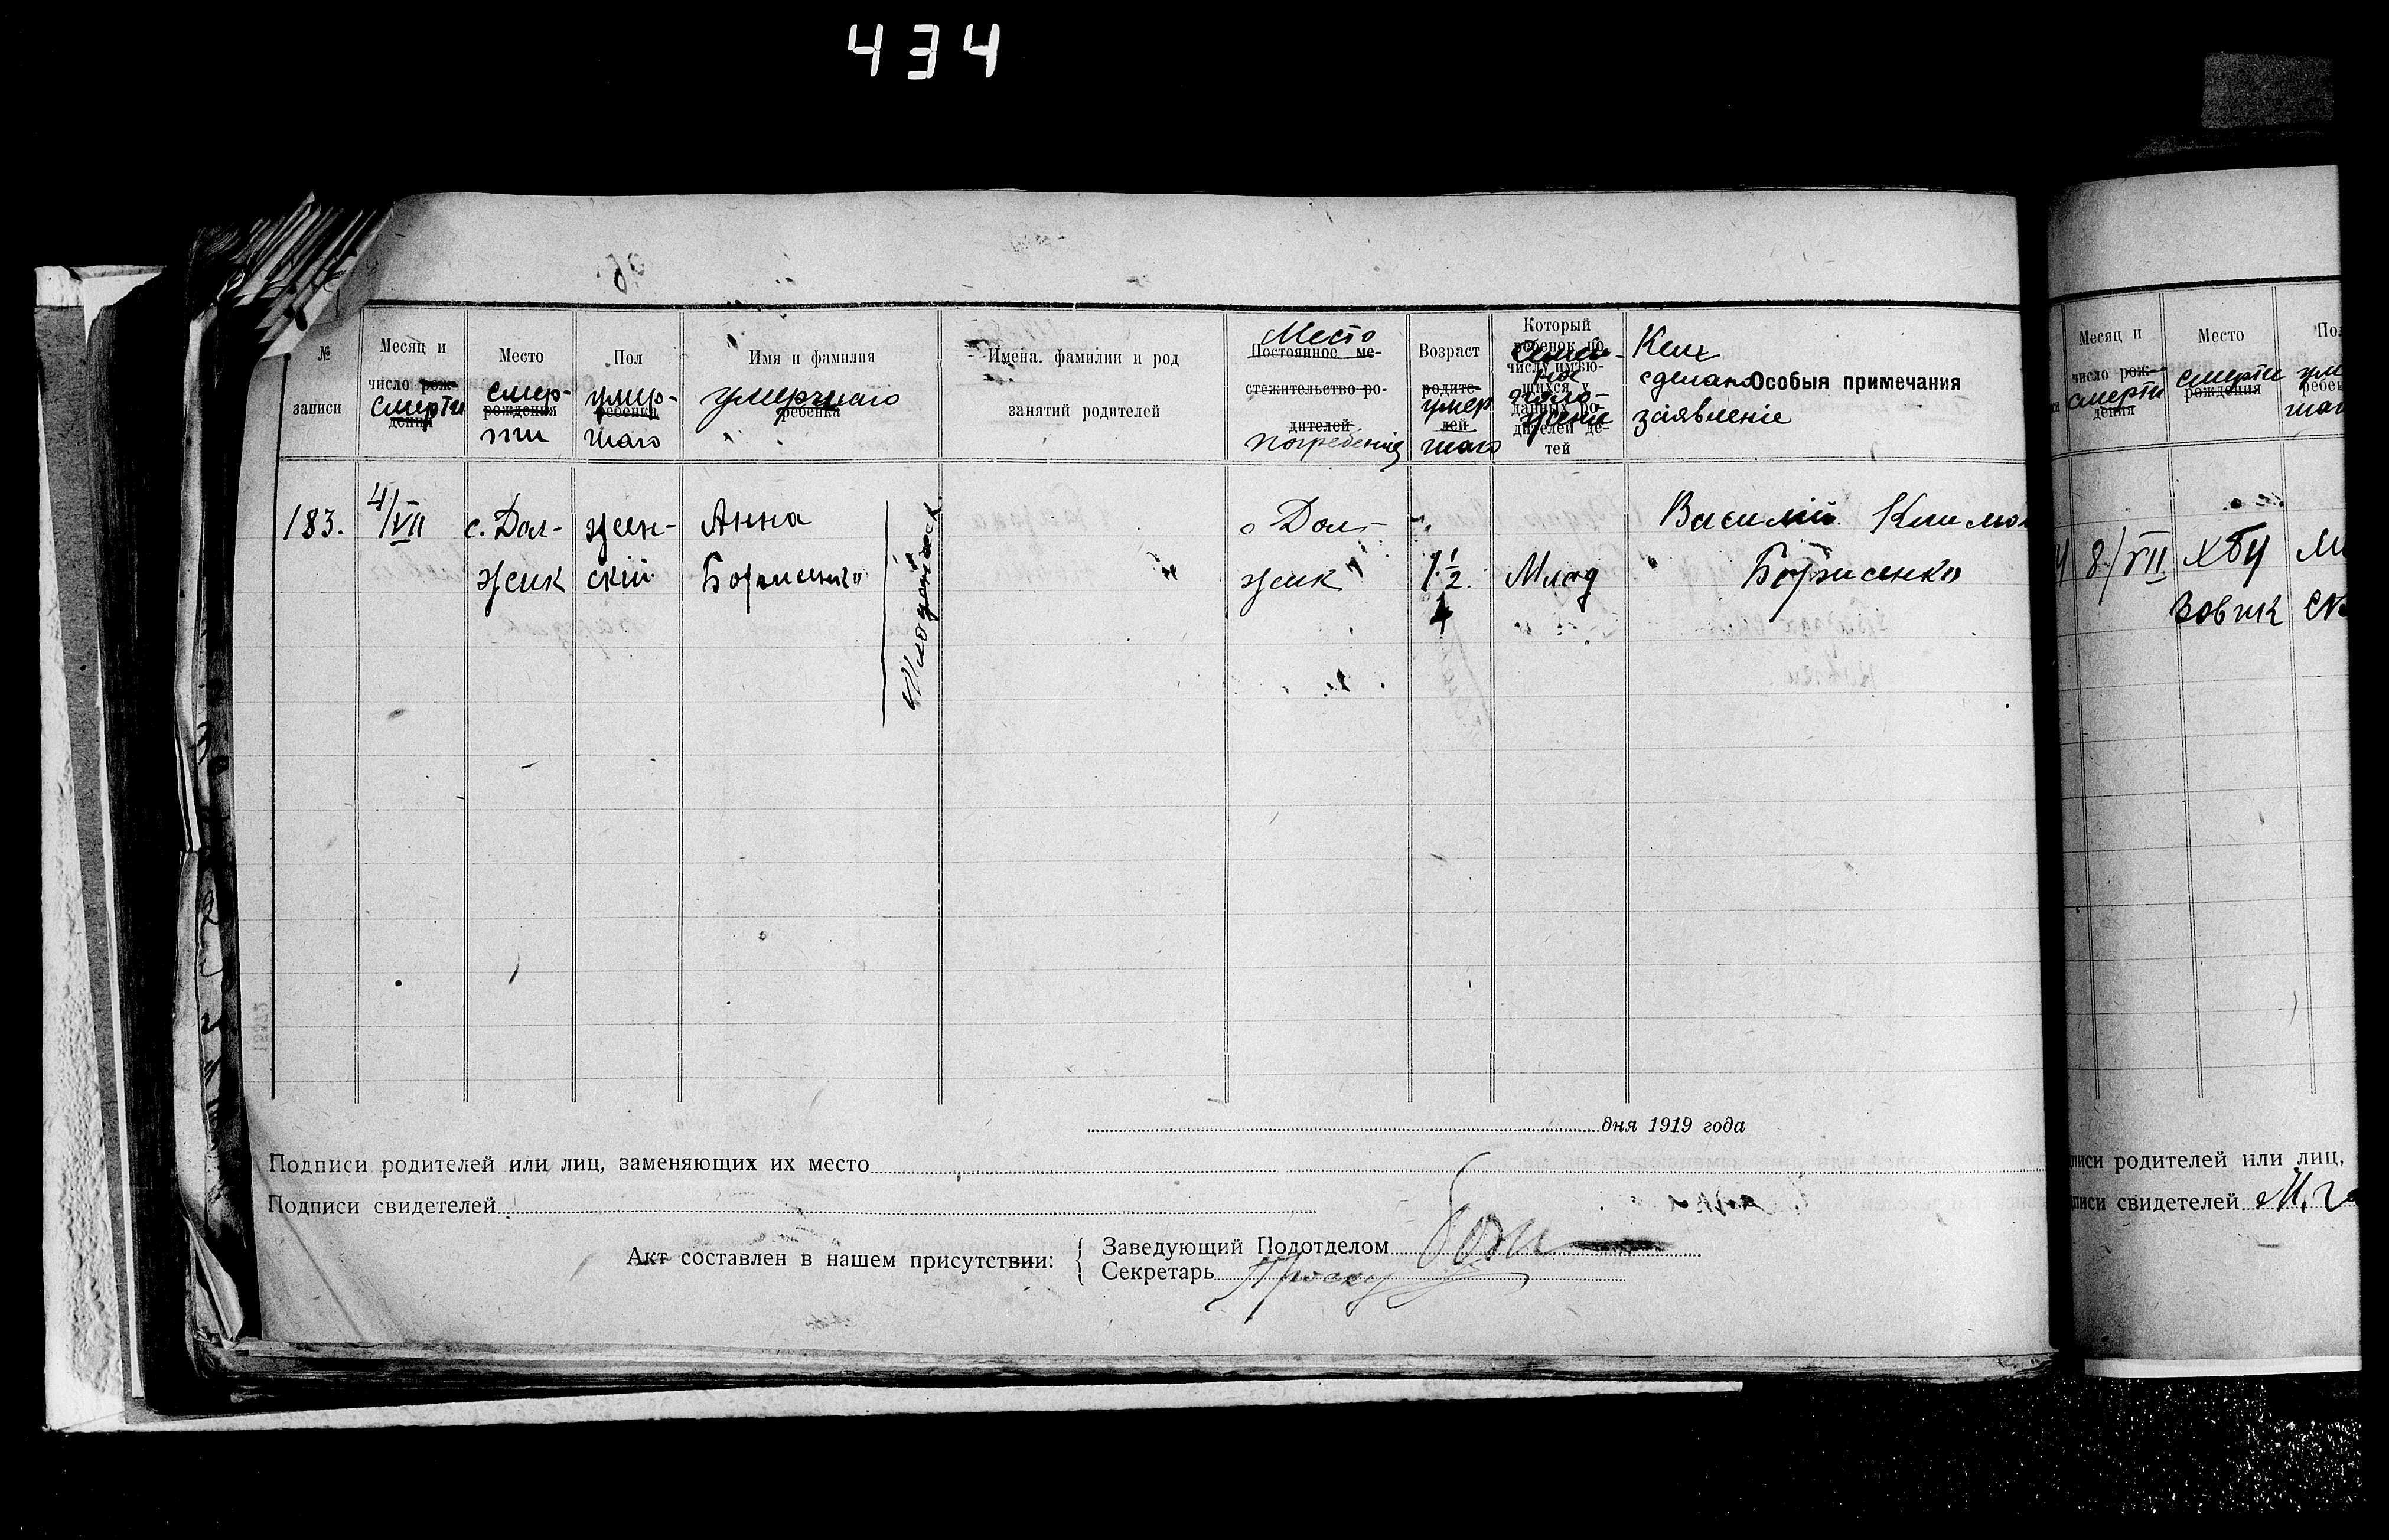 434
№ записи
Месяц и число рождения смерти
Место рождения смерти
Пол ребенка умершаго
Имя и фамилия ребенка умершаго
Имена, фамилии и род занятий родителей
Постоянное местожительство родителей Место погребения
Возраст родителей умершаго
Который ребенок по числу имеющихся у данных родителей детей
Кем сделано заявление
Особыя примечания
183.
4/VII
с. Дол-
жик
жен-
скій
Анна
Борисенко
с Дол-
жик
1 1/2
Млад
Василій
Борисенко
дня 1919 года
Подписи родителей или лиц, заменяющих их место
Подписи свидетелей
Акт составлен в нашем присутствии:
Заведующий Подотделом
Секретарь
Месяц и
число рож-
смерти
дения
Место
смерти
рождения
8/VII
писи родителей или лиц,
писи свидетелей